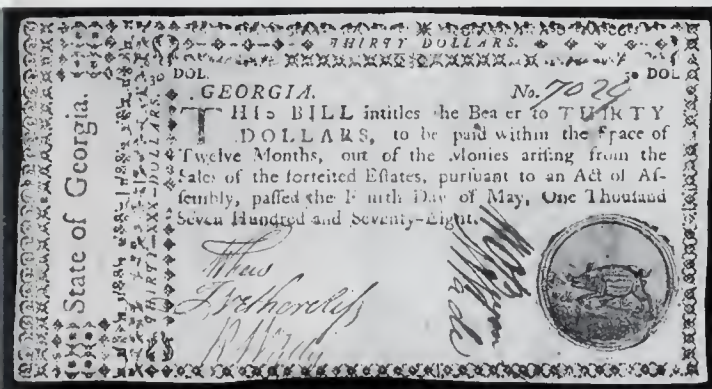 THIRTY DOLLARS.
30 DOL.
30 DOL.
GEORGIA. No. 7029
THIS BILL intitles the Bearer to THIRTY
DOLLARS, to be paid within the Space of
Twelve Months, out of the Monies ariſing from the
Sales of the forfeited Eſtates, purſuant to an Act of Aſ-
ſembly, paſſed the Fourth Day of May, One Thouſand
Seven Hundred and Seventy-Eight.
Wade
State of Georgia.
THIRTY—XXX—DOLLARS.